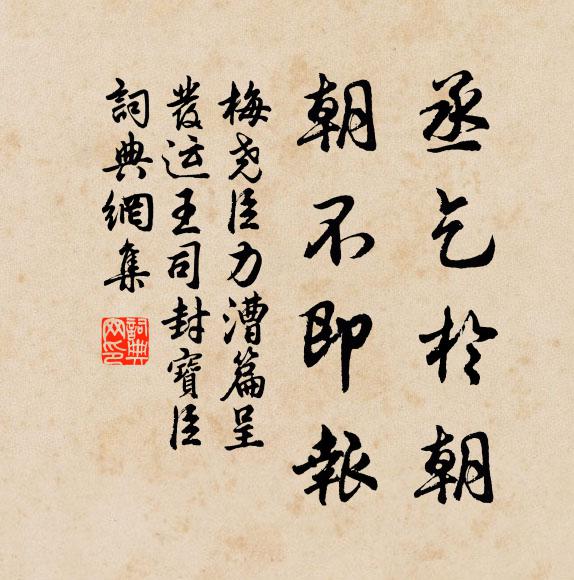 丞乞於朝
朝不即報
梅尧臣力漕篇呈
發运王司封寶臣
詞典網集
詞典网印